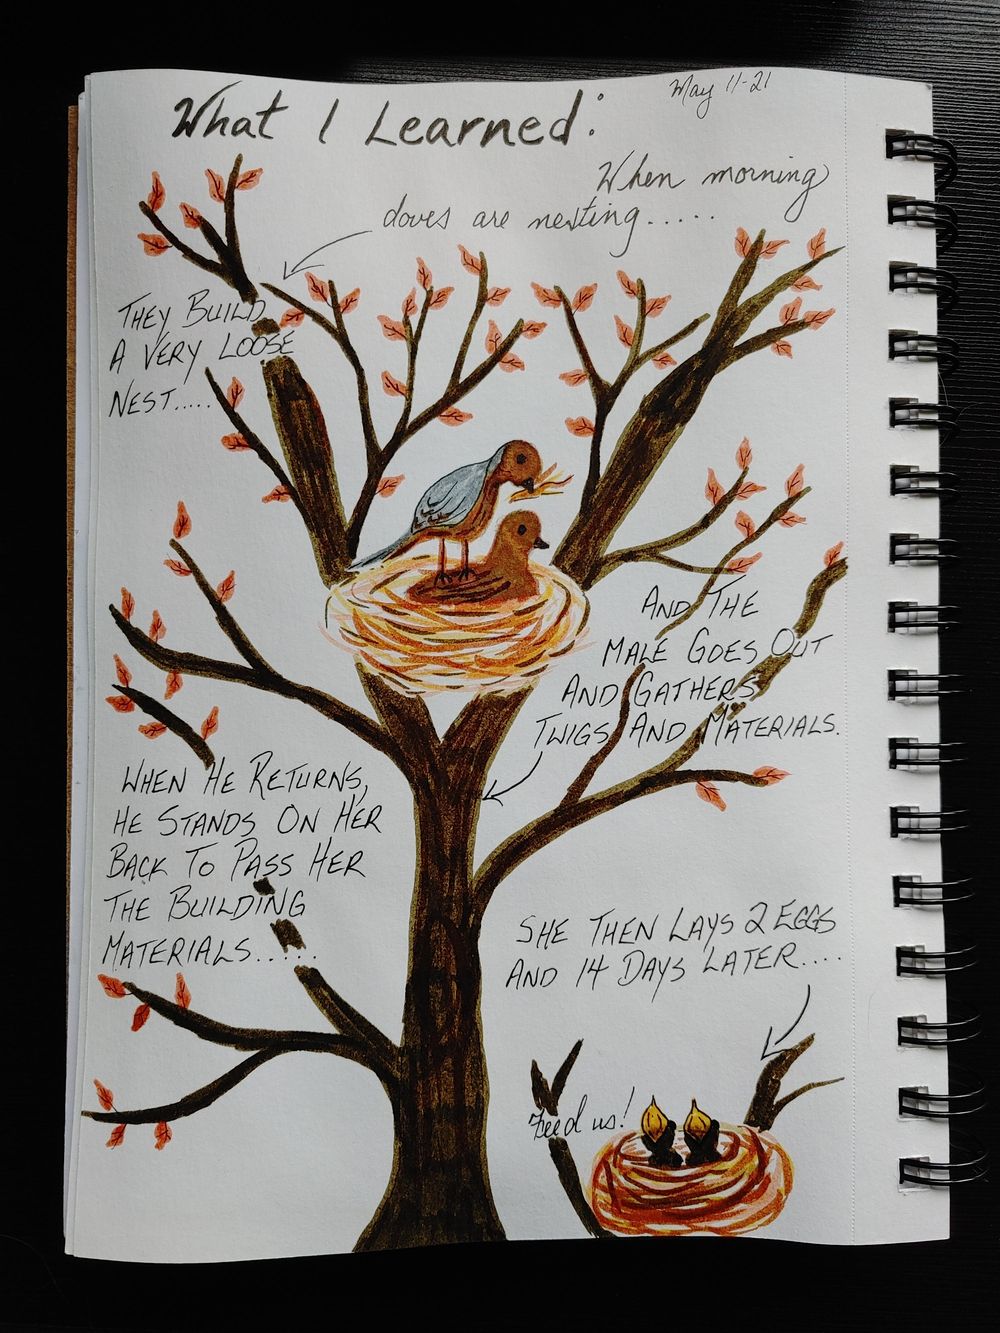 May 11-21
What I Learned:
When morning
doves are nesting.....
They Build
A Very Loose
Nest.....
And The
Male Goes Out
And Gathers
Twigs And Materials.
When He Returns,
He Stands On Her
Back To Pass Her
The Building
Materials.....
She Then Lays 2 Eggs
And 14 Days Later....
Feed us!